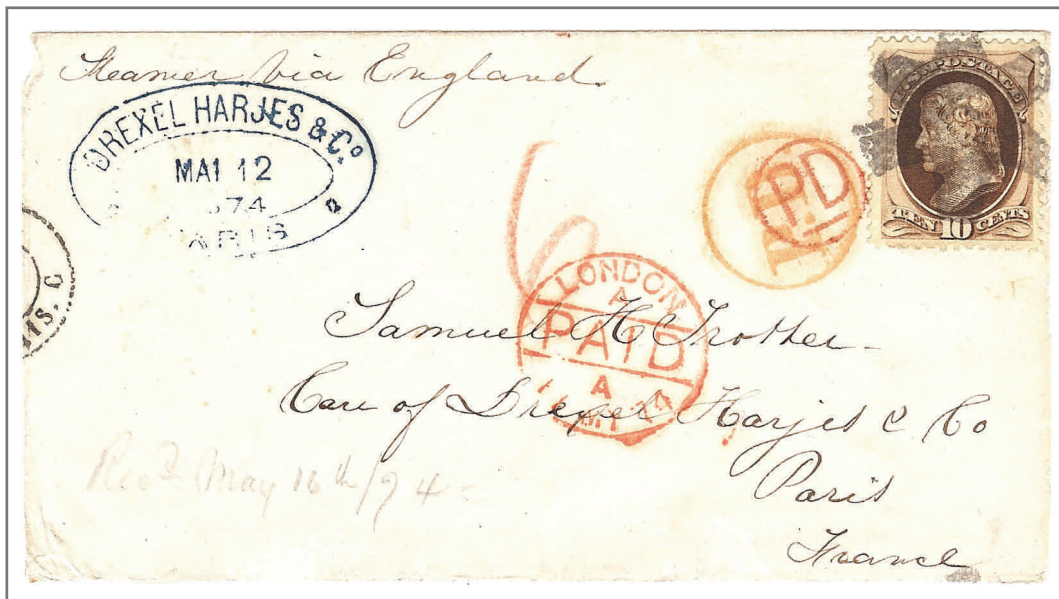 Steamer via England
DREXEL HARJES & Co.
MAI 12
1874
PARIS
6
PD
U.S. POSTAGE
TEN 10 CENTS
LONDON
A
PAID
A
MY 74
Samuel H Trotter
Care of Drexel Harjes & Co
Paris
France
Recd May 16th/74